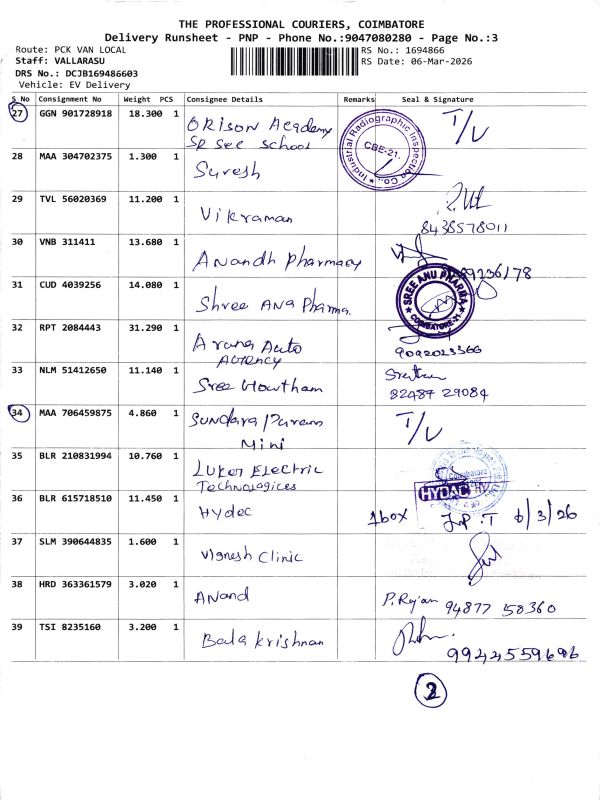 THE PROFESSIONAL COURIERS, COIMBATORE
Delivery Runsheet - PNP - Phone No.:9047080280 - Page No.:3
Route: PCK VAN LOCAL
RS No.: 1694866
Staff: VALLARASU
RS Date: 06-Mar-2026
DRS No.: DCJB169486603
Vehicle: EV Delivery
S No Consignment No Weight PCS Consignee Details Remarks Seal & Signature
27 GGN 901728918 18.300 1 ORISON Academy T/L
SR SEC School
Industrial Radiographic Inspection Co.,
CBE-21.
28 MAA 304702375 1.300 1 Suresh
29 TVL 56020369 11.200 1 Vikraman
8438578011
30 VNB 311411 13.680 1 Anandh Pharmacy
31 CUD 4039256 14.080 1 Shree Ana Pharma.
SREE ANU PHARMA
COIMBATORE-21
32 RPT 2084443 31.290 1 Arana Auto
AGENCY
9092023366
33 NLM 51412650 11.140 1 Sree Gowtham
82487 29084
34 MAA 706459875 4.860 1 Sundara Puram T/L
Mini
35 BLR 210831994 10.760 1 Luker Electric
Technologices
Coimbatore
36 BLR 615718510 11.450 1 Hydec 1box 6/3/26
HYDAC
37 SLM 390644835 1.600 1 Vignesh Clinic
38 HRD 363361579 3.020 1 Anand P. Rajan 94877 58360
39 TSI 8235160 3.200 1 Bala krishnan
9944559696
2